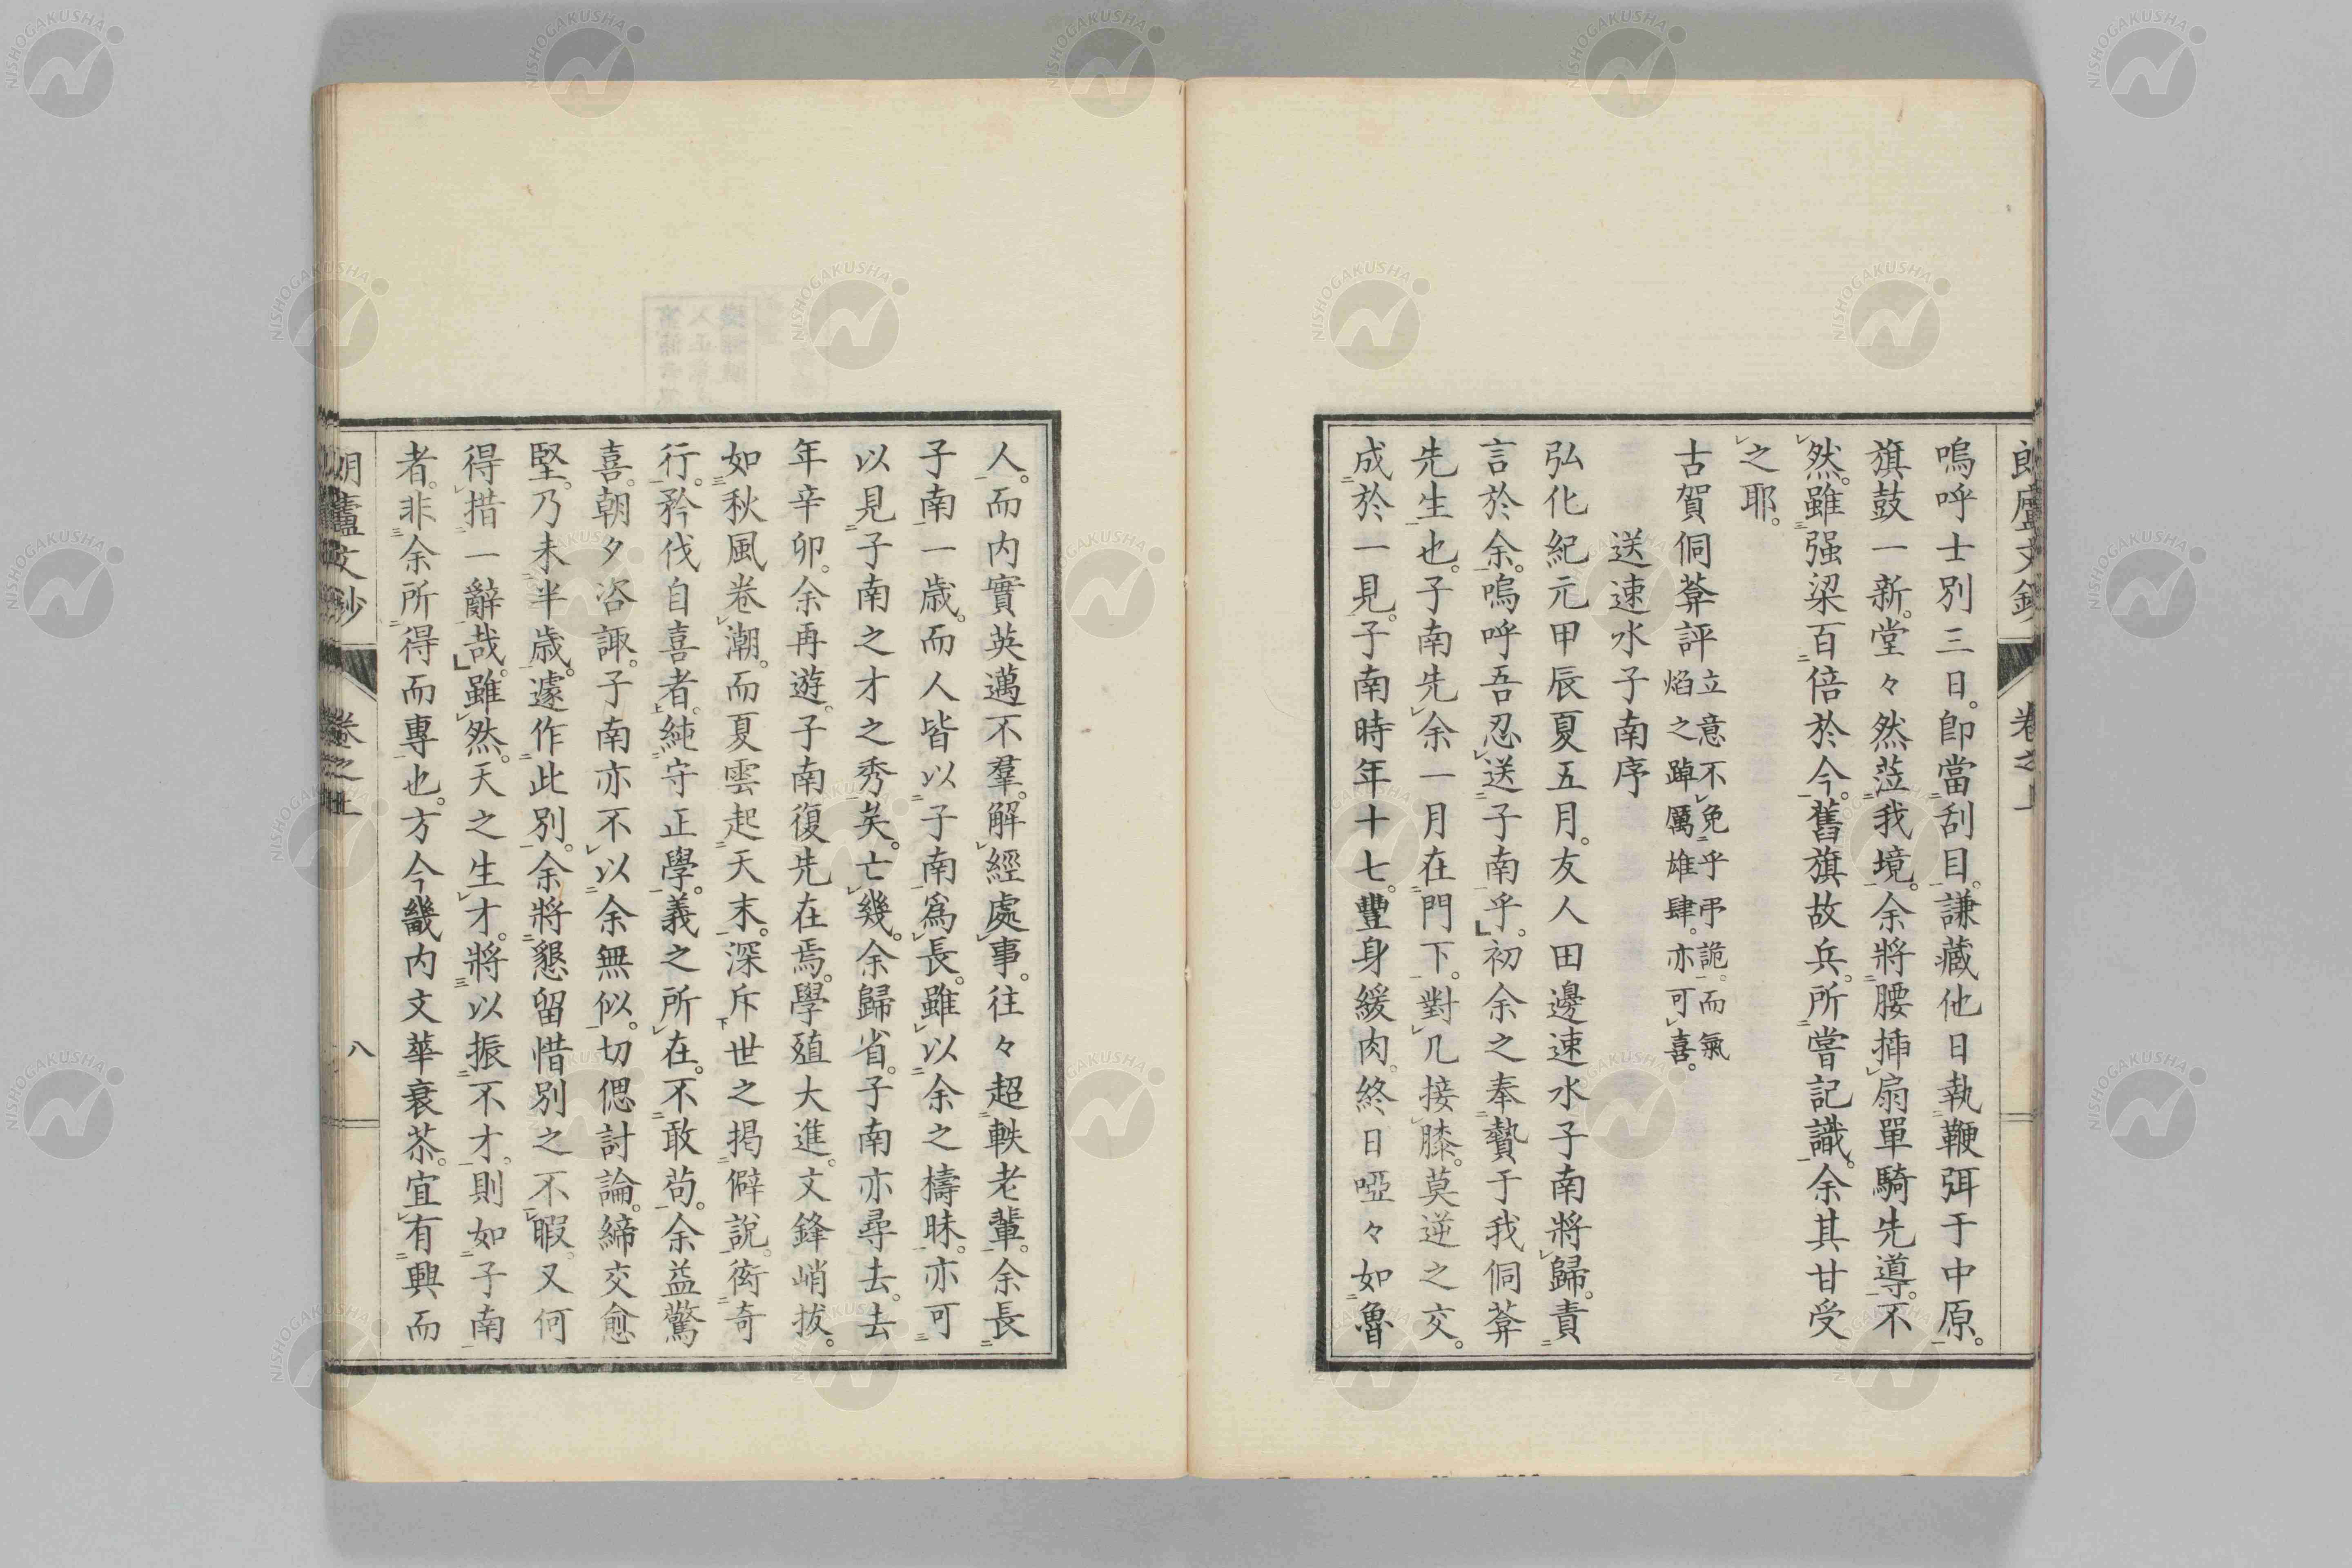 嗚呼士別三日。卽當刮目。謙藏他日執鞭弭于中原。
旗鼓一新。堂々然蒞我境。余將腰揷扇單騎先導。不
然。雖强梁百倍於今。舊旗故兵。所嘗記識。余其甘受
之耶。
古賀侗葊評立意不免乎弔詭。而氣
焰之踔厲雄肆。亦可喜。
送速水子南序
弘化紀元甲辰夏五月。友人田邊速水子南將歸。責
言於余。嗚呼吾忍送子南乎。初余之奉贄于我侗葊
先生也。子南先余一月在門下。對几接膝。莫逆之交。
成於一見。子南時年十七。豐身緩肉。終日啞々如魯
人。而内實英邁不羣。解經處事。往々超軼老輩。余長
子南一歲。而人皆以子南爲長。雖以余之檮昧。亦可
以見子南之才之秀矣。亡幾。余歸省。子南亦尋去。去
年辛卯。余再遊。子南復先在焉。學殖大進。文鋒峭拔。
如秋風卷潮。而夏雲起天末。深斥世之揭僻說。衒奇
行。矜伐自喜者。純守正學。義之所在。不敢苟。余益驚
喜。朝夕咨諏。子南亦不以余無似。切偲討論。締交愈
堅。乃未半歲。遽作此別。余將懇留惜別之不暇。又何
得措一辭哉。雖然。天之生才。將以振不才。則如子南
者。非余所得而專也。方今畿内文華衰苶。宜有興而
卷之上
八
NISHOGAKUSHA